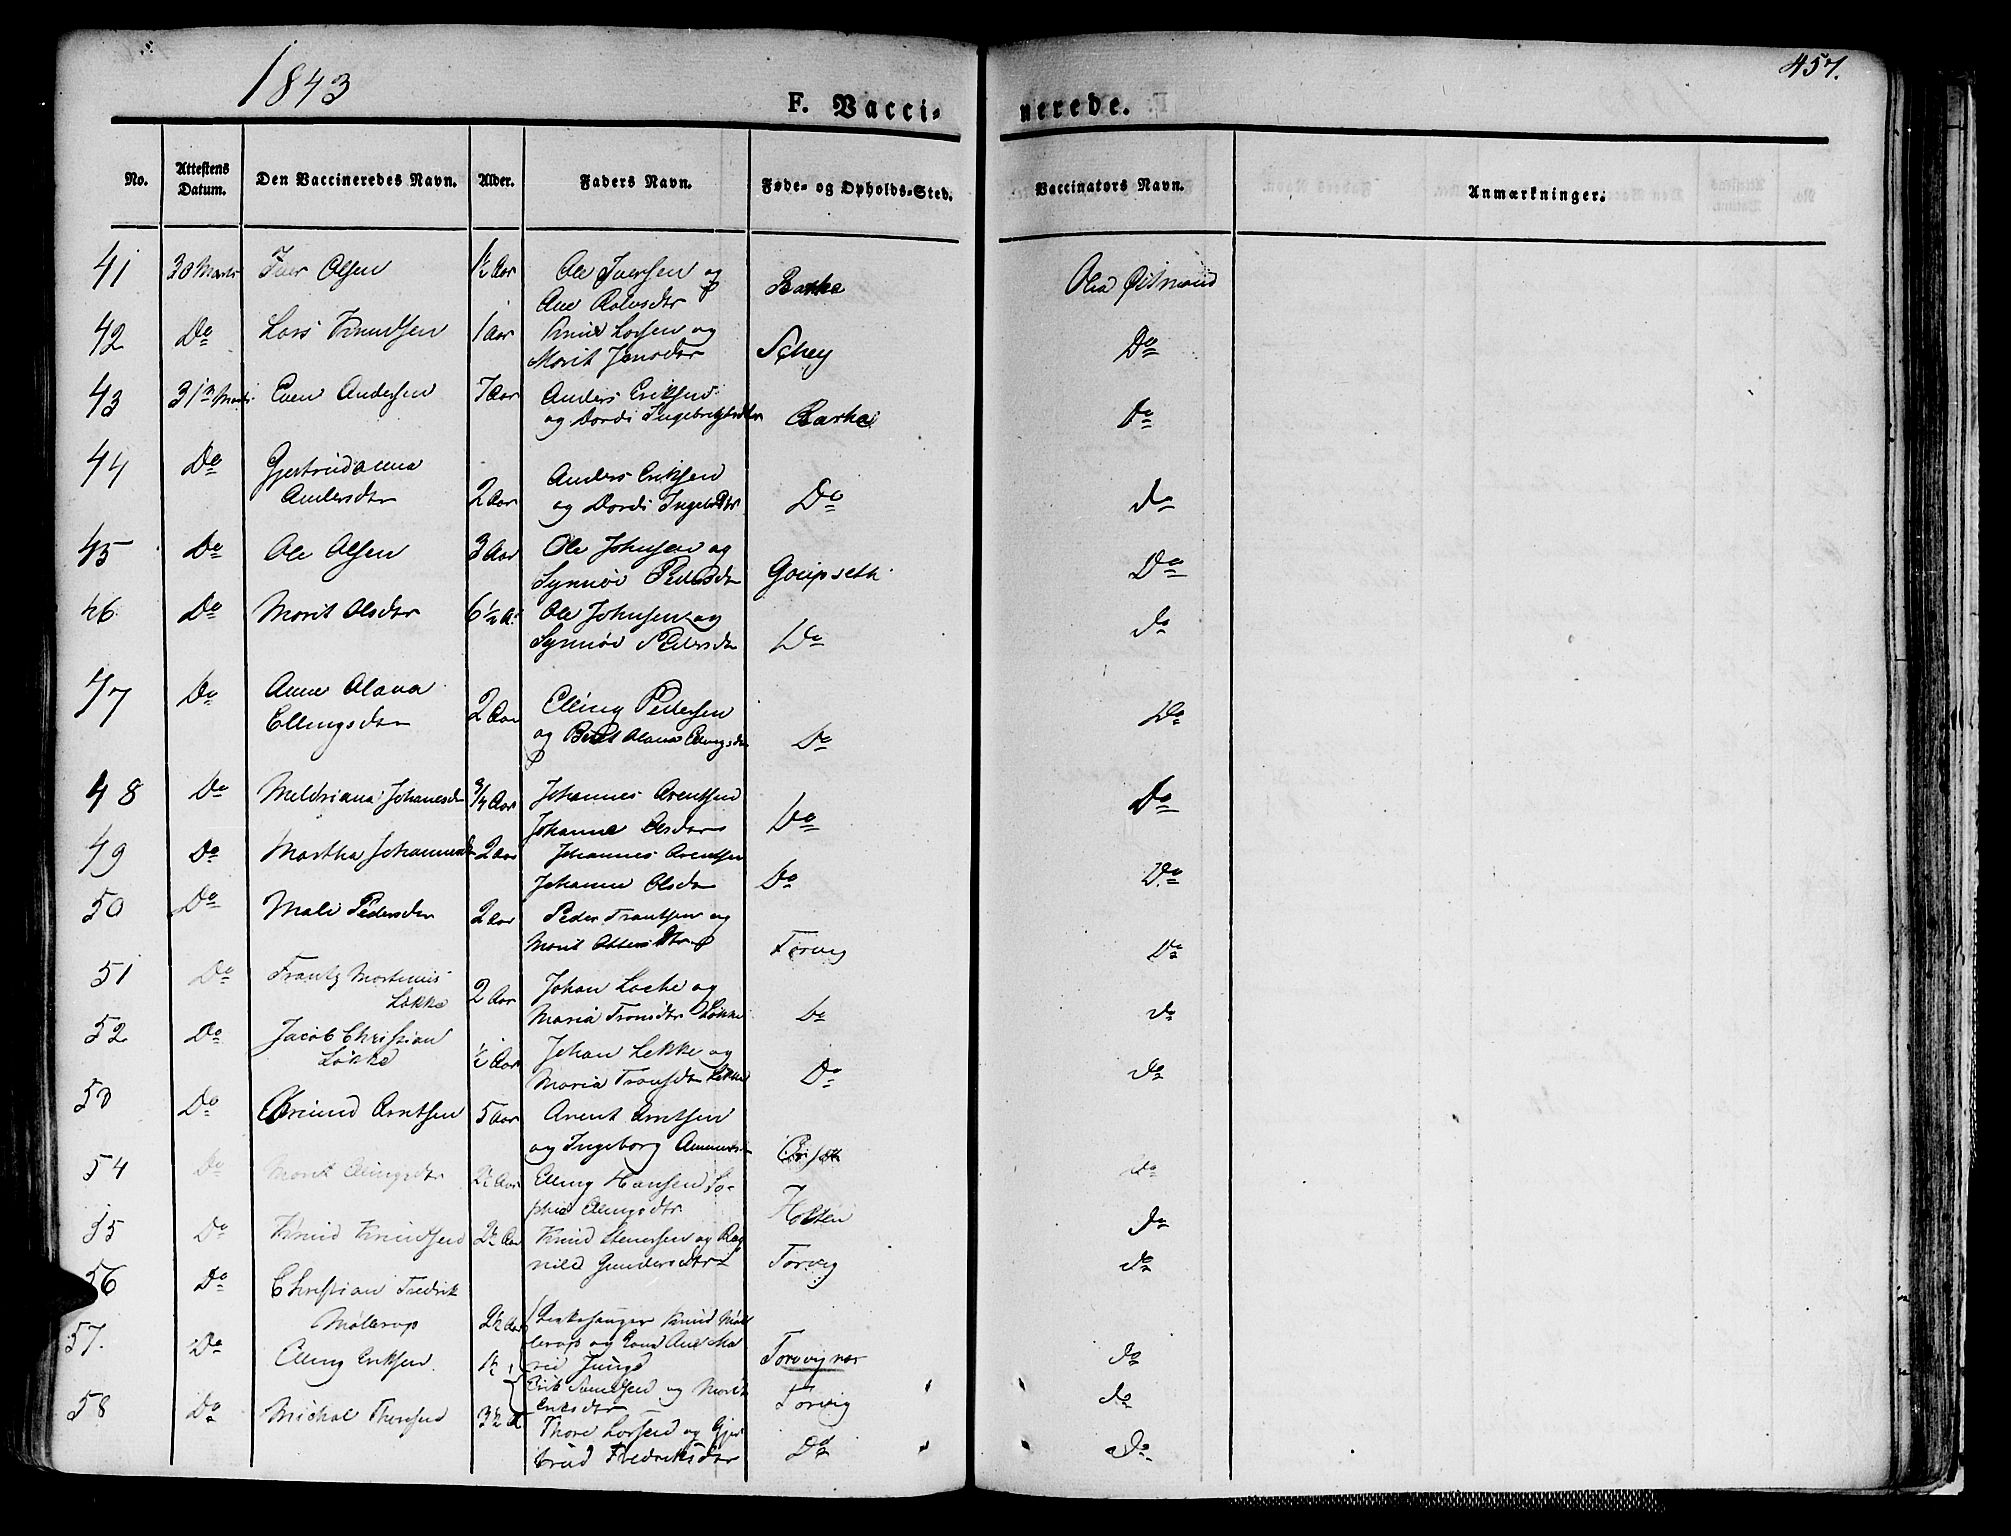 1843
457.
F. Vacci- nerede.
No. Attestens Datum. Den Vaccineredes Navn. Alder. Faders Navn. Føde- og Opholds-Sted. Vaccinators Navn. Anmærkninger:
41 30 Marts Iver Olsen 1½ Aar Ole Iversen og
Ane Rolvsdtr Barke Ola
42 Do Lars Knudsen 1 Aar Knud Larsen og
Marit Jensdtr Schey Do
43 31 Marts Even Andersen 7 Aar Anders Eriksen
og Dordi Ingebrigtsdtr Barke Do
44 Do Gjertrudanna
Andersdtr 2 Aar Anders Eriksen
og Dordi Ingebrdtr Do Do
45 Do Ole Olsen 3 Aar Ole Johnsen og
Synnøv Pedersdtr Goupseth Do
46 Do Marit Olsdtr 6½ A. Ole Johnsen og
Synnøv Pedersdtr Do Do
47 Do Anne Olava
Ellingsdtr 2 Aar Elling Pedersen
og Berit Olava Ellingsdtr Do Do
48 Do Meldriana Johanesdtr ¾ Aar Johannes Arentsen
Johanne Olsdatr Do Do
49 Do Martha Johannesdtr 2 Aar Johannes Arentsen
Johanne Olsdtr Do Do
50 Do Mali Pedersdtr 2 Aar Peder Frantsen og
Marit Ottersdtr Torvig Do
51 Do Frantz Martinus
Løkke 2 Aar Johan Løcke og
Maria Fransdtr Løkke Do Do
52 Do Jacob Christian
Løkke ½ Aar Johan Løkke og
Maria Fransdtr Løkke Do Do
53 Do Arntsen 5 Aar Arent Arntsen
og Ingeborg
54 Do Marit Ellingsdtr 2½ Aar Elling Hansen So-
phie Ellingsdtr Holten Do
55 Do Knud Knudsen 2½ Aar Knud Stenersen og Rag
nild Gundersdtr Torvig Do
56 Do Christian Fredrik
Møllerup 2½ Aar Kirkesanger Knud Møl
lerup og Kone Ane Ma
rie Junge Torvignæs Do
57. Do Elling Eriksen 1½ Erik Knudsen og Marit
Eriksdtr Torvig Do
58 Do Michal Thoresen 3½ A Thore Larsen og Gjer
trud Fredriksdtr Do Do